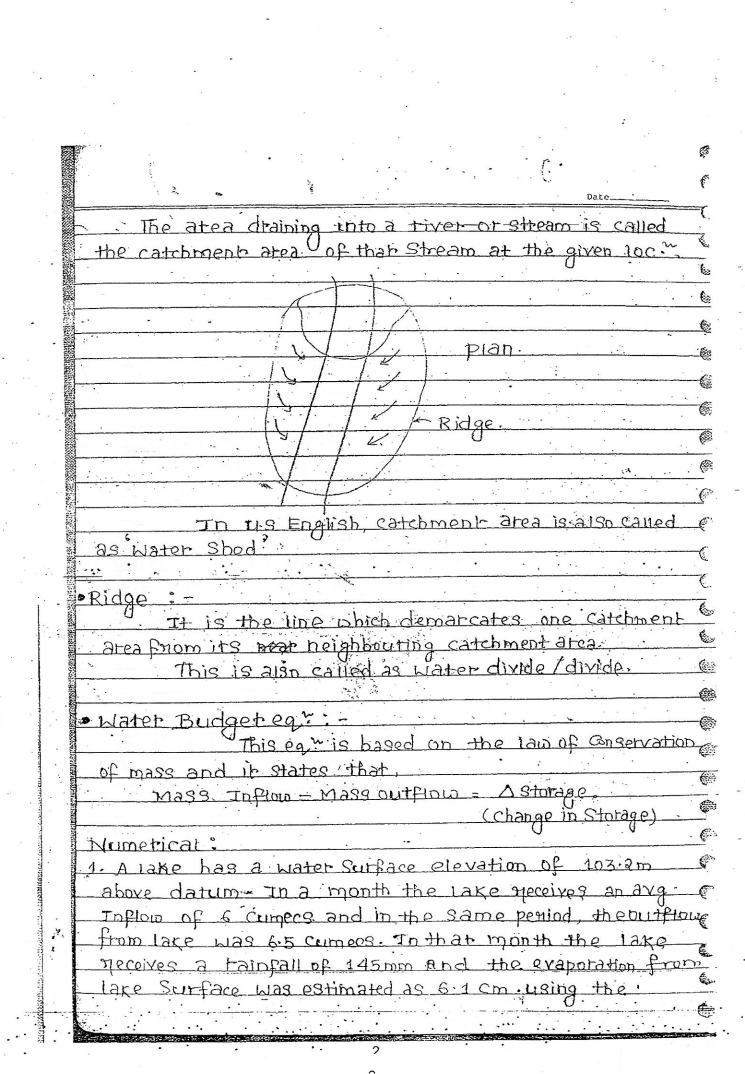 Date
The area draining into a river or stream is called
the catchment area of that Stream at the given locⁿ.
Plan.
← Ridge.
In U.S English, catchment area is also called
as 'Water Shod'
• Ridge :-
It is the line which demarcates one catchment
area from its near neighbouring catchment area.
This is also called as water divide / divide.
• Water Budget eqⁿ :-
This eqⁿ is based on the law of Conservation
of mass and it states that,
Mass Inflow - Mass outflow = Δ Storage.
(change in Storage)
Numerical :
1. A lake has a water Surface elevation of 103.2m
above datum - In a month the lake receives an avg.
Inflow of 6 cumecs and in the same period, the outflow
from lake was 6.5 cumecs. In that month the lake
receives a rainfall of 145mm and the evaporation from
lake Surface was estimated as 6.1 cm. using the
2